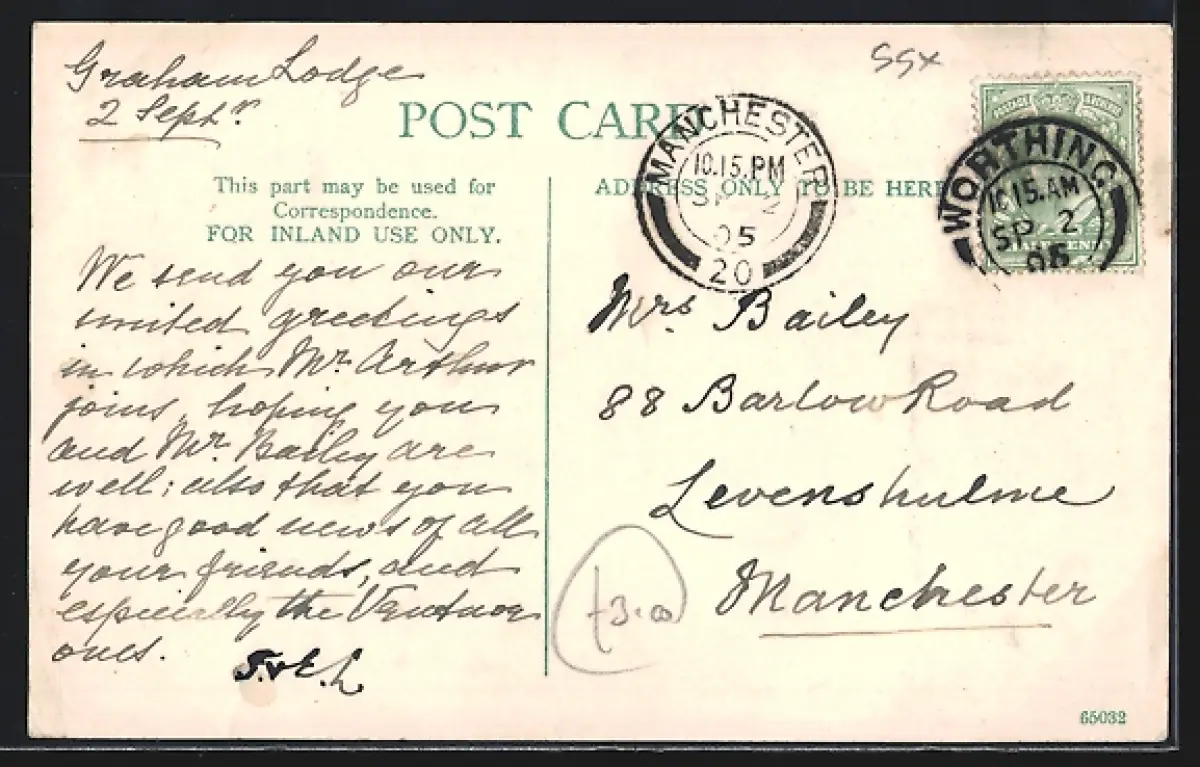 Graham Lodge
2 Septr.
SSX
POST CARD
MANCHESTER
10.15.PM
SP 2
05
20
WORTHING
10 15.AM
SP 2
05
HALFPENNY
This part may be used for
Correspondence.
FOR INLAND USE ONLY.
ADDRESS ONLY TO BE HERE
We send you our
united greetings
in which Mr. Arthur
joins, hoping you
and Mr. Bailey are
well; also that you
have good news of all
your friends, and
especially the Ventnor
ones.
Mrs. Bailey
88 Barlow Road
Levenshulme
Manchester
65032